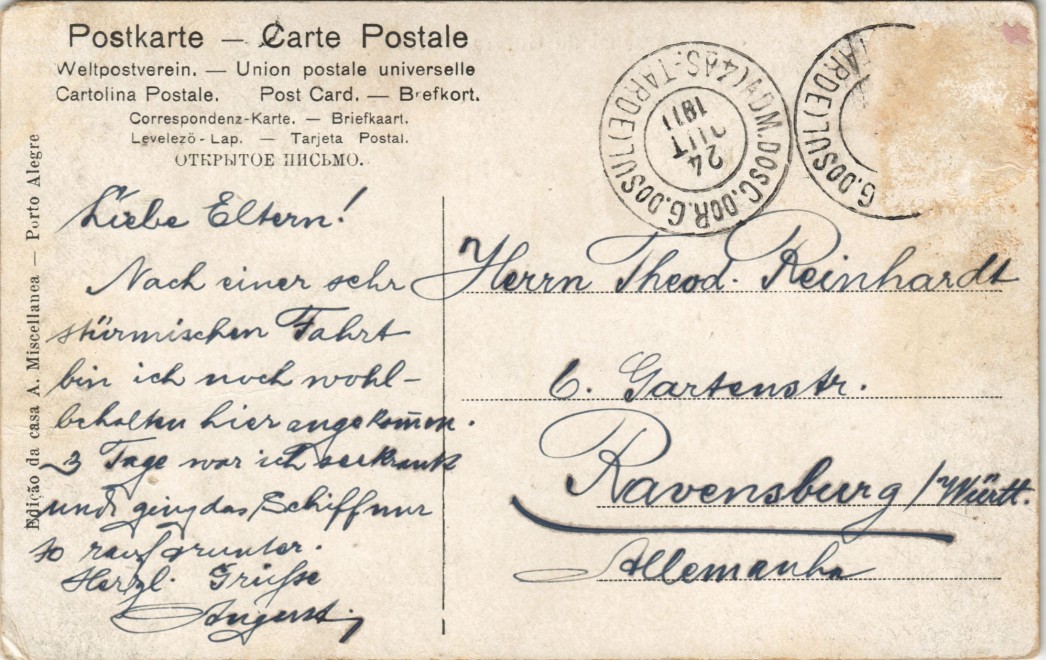 Postkarte — Carte Postale
Weltpostverein. — Union postale universelle
Cartolina Postale. Post Card. — Brefkort.
Correspondenz-Karte. — Briefkaart.
Levelezö-Lap. — Tarjeta Postal.
ОТКРЫТОЕ ПИСЬМО.
Edição da casa A. Miscellanea — Porto Alegre
Liebe Eltern!
Nach einer sehr
stürmischen Fahrt
bin ich noch wohl-
behalten hier angekom̅en.
3 Tage war ich seekrank
und ging das Schiff nur
so rauf & runter.
Herzl. Grüße
Herrn Theod. Reinhardt
6. Gartenstr.
Ravensburg / Württ.
Allemanha
ADM. DOS C. DO R. G. DO SUL (4ªS-TARDE)
24
OUT
1911
G. DO SUL
TARDE)